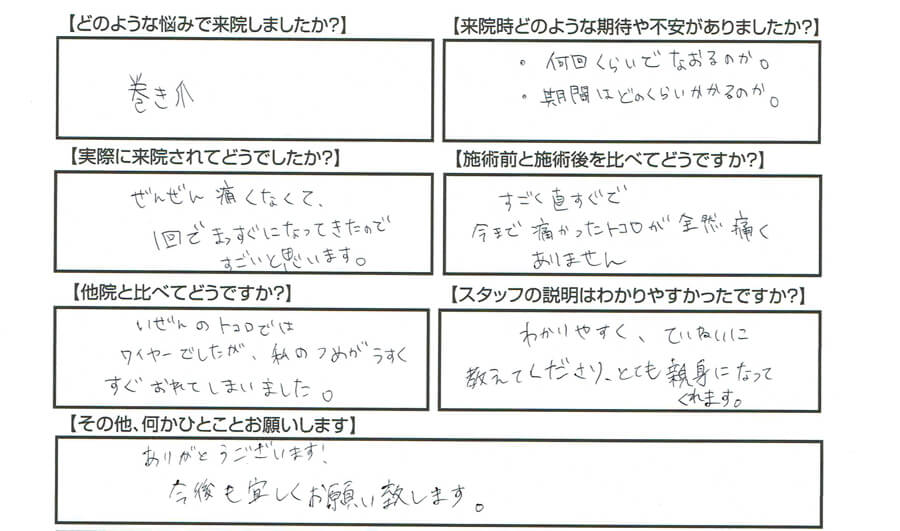 【どのような悩みで来院しましたか?】
巻き爪
【来院時どのような期待や不安がありましたか?】
・何回くらいでなおるのか。
・期間はどのくらいかかるのか。
【実際に来院されてどうでしたか?】
ぜんぜん痛くなくて、
1回でまっすぐになってきたので
すごいと思います。
【施術前と施術後を比べてどうですか?】
すごく直すぐで
今まで痛かったトコロが全然痛く
ありません
【他院と比べてどうですか?】
いぜんのトコロでは
ワイヤーでしたが、私のつめがうすく
すぐおれてしまいました。
【スタッフの説明はわかりやすかったですか?】
わかりやすく、ていねいに
教えてくださり、とても親身になって
くれます。
【その他、何かひとことお願いします】
ありがとうございます!
今後も宜しくお願い致します。